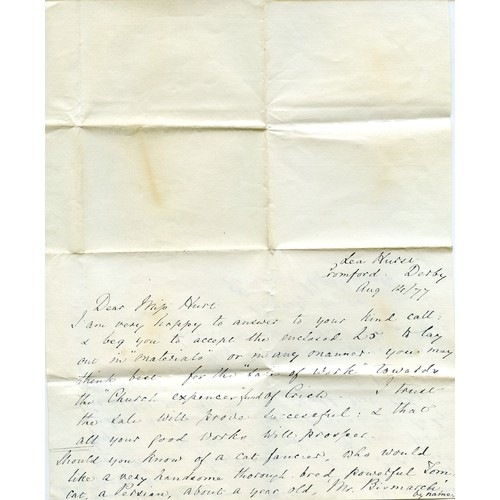 Lea Hurst
Cromford. Derby
Aug 14/77
Dear Miss Hurt
I am very happy to answer to your kind call:
& beg you to accept the enclosed £5 to lay
out in "materials" or in any manner you may
think best for the "Sale of Work" towards
the "Church expences fund of Crich. I trust
the Sale will prove successful: & that
all your good works will prosper.
Should you know of a cat fancier, who would
like a very handsome thorough bred, powerful Tom
cat, a Persian, about a year old, 'Mr. Bismarck'
by name